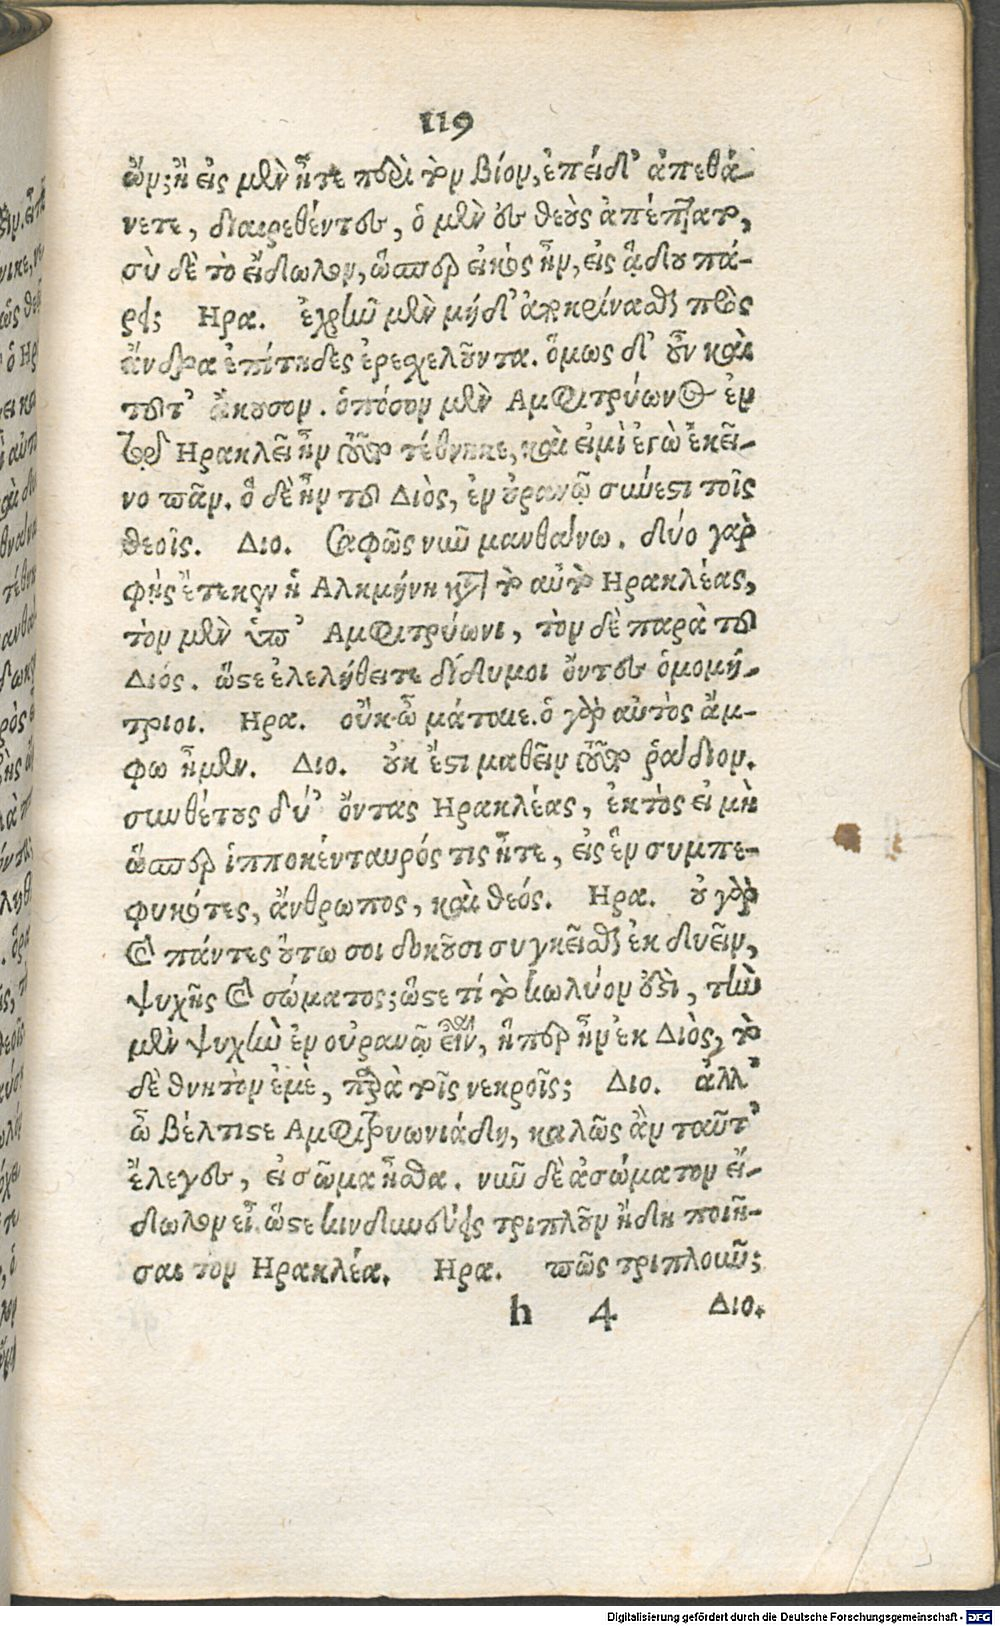 119
ὤν; ἢ εἰς μὲν ἦτε παρὰ τὸν βίον, ἐπεὶ δ' ἀπεθά-
νετε, διαιρεθέντες, ὁ μὲν ἐς θεοὺς ἀπέπτατο,
σὺ δὲ τὸ εἴδωλον, ὥσπερ εἰκὸς ἦν, εἰς ᾅδου πά-
ρει; Ηρα. ἐχρῆν μὲν μηδ' ἀποκρίνασθαι πρὸς
ἄνδρα ἐπίτηδες ἐρεσχελοῦντα. ὅμως δ' οὖν καὶ
τοῦτ' ἄκουσον. ὁπόσον μὲν Αμφιτρύωνος ἐν
τῷ Ηρακλεῖ ἦν τοῦτο τέθνηκε, καὶ εἰμὶ ἐγὼ ἐκεῖ-
νο πᾶν. ὃ δὲ ἦν τοῦ Διὸς, ἐν οὐρανῷ σύνεστι τοῖς
θεοῖς. Διο. Σαφῶς νῦν μανθάνω. δύο γὰρ
φῂς ἔτεκεν ἡ Αλκμήνη κατὰ τὸ αὐτὸ Ηρακλέας,
τὸν μὲν ὑπ' Αμφιτρύωνι, τὸν δὲ παρὰ τοῦ
Διός. ὥστε ἐλελήθειτε δίδυμοι ὄντες ὁμομή-
τριοι. Ηρα. οὔκ ὦ μάταιε. ὁ γὰρ αὐτὸς ἄμ-
φω ἦμεν. Διο. οὐκ ἔστι μαθεῖν τοῦτο ῥᾴδιον.
συνθέτους δύ' ὄντας Ηρακλέας, ἐκτὸς εἰ μὴ
ὥσπερ ἱπποκένταυρός τις ἦτε, εἰς ἓν συμπε-
φυκότες, ἄνθρωπος, καὶ θεός. Ηρα. οὐ γὰρ
καὶ πάντες οὕτω σοι δοκοῦσι συγκεῖσθαι ἐκ δυεῖν,
ψυχῆς καὶ σώματος; ὥστε τί τὸ κωλύον ἐστὶ, τὴν
μὲν ψυχὴν ἐν οὐρανῷ εἶναι, ἥπερ ἦν ἐκ Διὸς, τὸ
δὲ θνητὸν ἐμὲ, παρὰ τοῖς νεκροῖς; Διο. ἀλλ'
ὦ βέλτιστε Αμφιτρυωνιάδη, καλῶς ἂν ταῦτ'
ἔλεγες, εἰ σῶμα ἦσθα. νῦν δὲ ἀσώματον εἴ-
δωλον εἶ. ὥστε κινδυνεύεις τριπλοῦν ἤδη ποιῆ-
σαι τὸν Ηρακλέα. Ηρα. πῶς τριπλοῦν;
h 4 Διο.
Digitalisierung gefördert durch die Deutsche Forschungsgemeinschaft - DFG